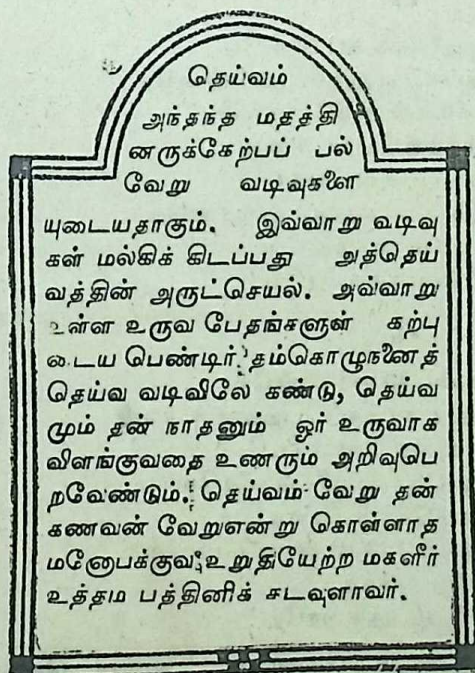 தெய்வம்
அந்தந்த மதத்தி
னருக்கேற்பப் பல்
வேறு வடிவுகளை
யுடையதாகும். இவ்வாறு வடிவு
கள் மல்கிக் கிடப்பது அத்தெய்
வத்தின் அருட்செயல். அவ்வாறு
உள்ள உருவ பேதங்களுள் கற்பு
டைய பெண்டிர் தம்கொழுநனைத்
தெய்வ வடிவிலே கண்டு, தெய்வ
மும் தன் நாதனும் ஓர் உருவாக
விளங்குவதை உணரும் அறிவுபெ
றவேண்டும். தெய்வம் வேறு தன்
கணவன் வேறுஎன்று கொள்ளாத
மனோபக்குவ உறுதியேற்ற மகளிர்
உத்தம பத்தினிக் கடவுளாவர்.